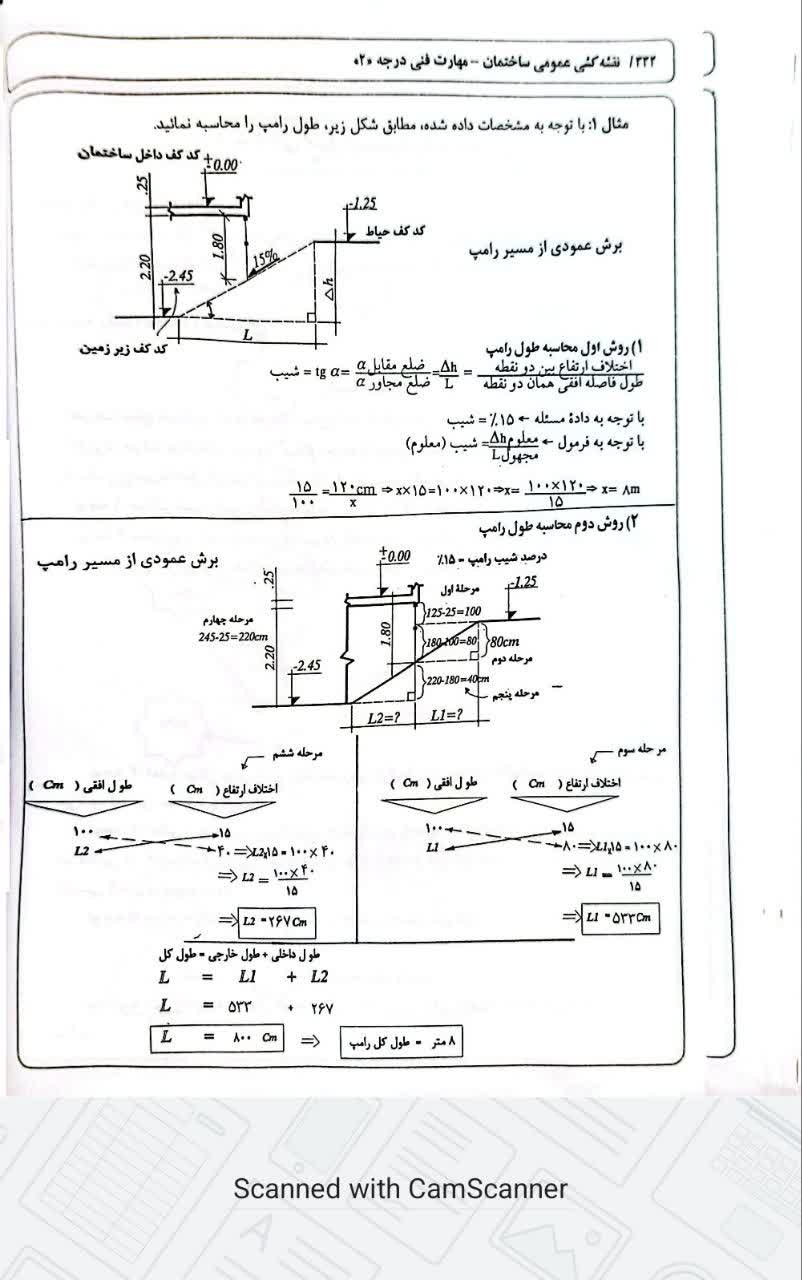 ۳۳۲/ نقشه‌کشی عمومی ساختمان – مهارت فنی درجه «۲»
مثال ۱: با توجه به مشخصات داده شده، مطابق شکل زیر، طول رامپ را محاسبه نمائید.
کد کف داخل ساختمان
±0.00
.25
-1.25
کد کف حیاط
1.80
15%
برش عمودی از مسیر رامپ
2.20
-2.45
Δh
L
کد کف زیر زمین
۱) روش اول محاسبه طول رامپ
شیب = tg α = ضلع مقابل α / ضلع مجاور α = Δh / L = اختلاف ارتفاع بین دو نقطه / طول فاصله افقی همان دو نقطه
با توجه به دادهٔ مسئله ← ۱۵٪ = شیب
با توجه به فرمول ← معلوم Δh / مجهول L = شیب (معلوم)
۱۵/۱۰۰ = ۱۲۰cm/x ⇒ x×۱۵=۱۰۰×۱۲۰ ⇒ x= ۱۰۰×۱۲۰/۱۵ ⇒ x= ۸m
۲) روش دوم محاسبه طول رامپ
برش عمودی از مسیر رامپ
±0.00
درصد شیب رامپ = ۱۵٪
.25
مرحلهٔ اول
-1.25
مرحله چهارم
125-25=100
245-25=220cm
1.80
180-100=80
80cm
2.20
مرحله دوم
-2.45
220-180=40cm
مرحله پنجم
L2=?
L1=?
مرحله سوم
اختلاف ارتفاع ( Cm )
طول افقی ( Cm )
۱۰۰
۱۵
L1
۸۰ ⇒ L1×۱۵ = ۱۰۰ × ۸۰
⇒ L1 = ۱۰۰×۸۰/۱۵
⇒ L1 = ۵۳۳ Cm
مرحله ششم
اختلاف ارتفاع ( Cm )
طول افقی ( Cm )
۱۰۰
۱۵
L2
۴۰ ⇒ L2×۱۵ = ۱۰۰ × ۴۰
⇒ L2 = ۱۰۰×۴۰/۱۵
⇒ L2 = ۲۶۷ Cm
طول داخلی + طول خارجی = طول کل
L = L1 + L2
L = ۵۳۳ + ۲۶۷
L = ۸۰۰ Cm ⇒ ۸ متر = طول کل رامپ
Scanned with CamScanner